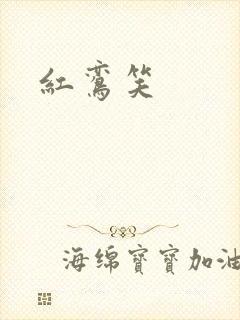 紅鸞笑
海绵寶寶加油